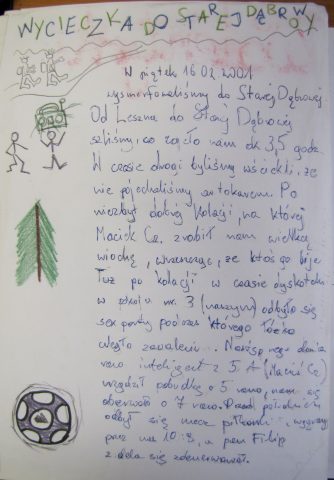 WYCIECZKA DO STAREJ DĄBROWY
W piątek 16.02.2001
wysmarfowaliśmy do Starej Dąbrowej
Od Leszna do Starej Dąbrowej
szliśmy, co zajęło nam ok 3,5 godz.
W czasie drogi byliśmy wściekli, że
nie pojechaliśmy autokarem. Po
niezbyt dobrej kolacji, na której
Maciek Cę. zrobił nam wielką
wiochę, wrzeszcząc, że ktoś go bije
Tuż po kolacji w czasie dyskoteki
w pokoju nr. 3 (naszym) odbyło się
party podczas którego łóżko
uległo zawaleniu. Następnego dnia
rano inteligent z 5 A (Maciek Cę)
urządził pobudkę o 5 rano, nam się
oberwało o 7 rano. Przed południem
odbył się mecz piłkarski, wygrany
przez nas 10:8, a pan Filip
z deka się zdenerwował.